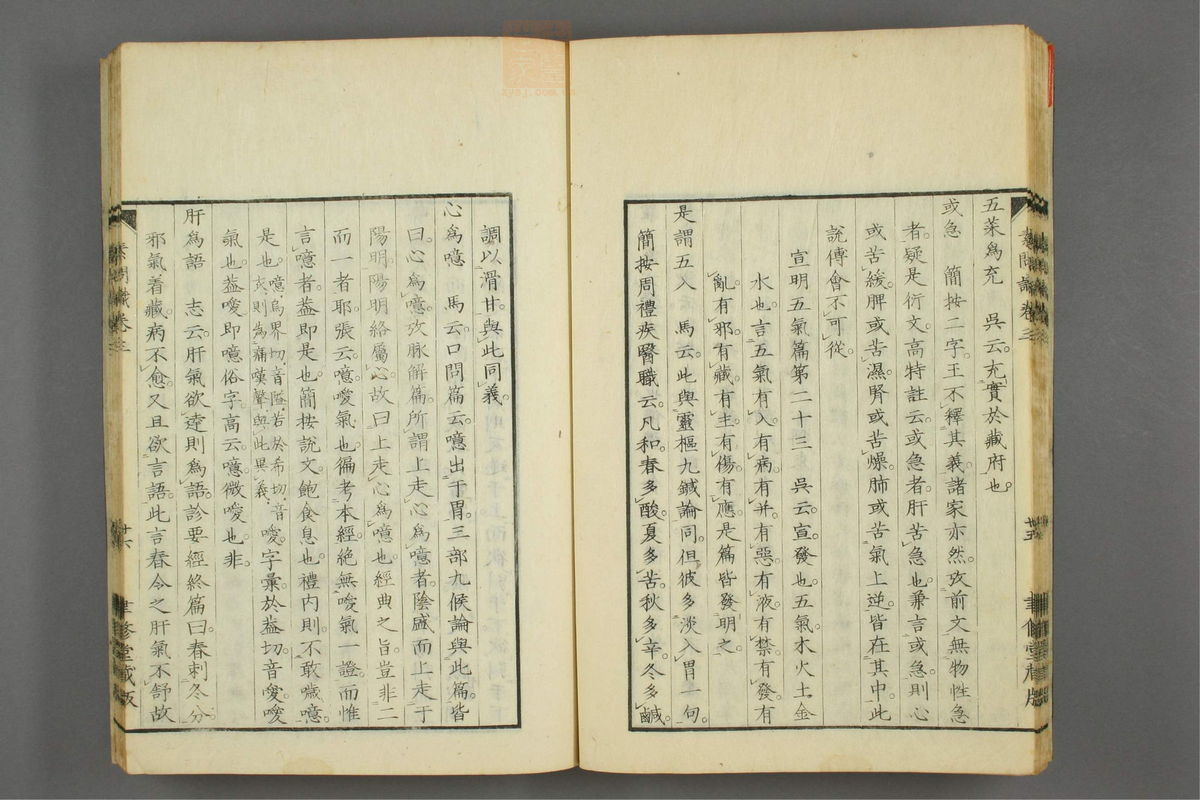 五菜為充　吳云充實於藏府也
或急　簡按二字王不釋其義諸家亦然攷前文無物性急
者疑是衍文高特註云或急者肝苦急也兼言或急則心
或苦緩脾或苦濕腎或苦燥肺或苦氣上逆皆在其中此
說傅會不可從
宣明五氣篇第二十三　吳云宣發也五氣木火土金
水也言五氣有入有病有并有惡有液有禁有發有
亂有邪有藏有主有傷有應是篇皆發明之
是謂五入　馬云此與靈樞九鍼論同但彼多淡入胃一句
簡按周禮疾醫職云凡和春多酸夏多苦秋多辛冬多鹹
調以滑甘與此同義
心為噫　馬云口問篇云噫出于胃三部九候論與此篇皆
曰心為噫攷脉解篇所謂上走心為噫者陰盛而上走于
陽明陽明絡屬心故曰上走心為噫也經典之旨豈非二
而一者耶張云噫噯氣也徧考本經絕無噯氣一證而惟
言噫者葢即是也簡按說文飽食息也禮內則不敢噦噫
是也噫烏界切音隘若於希切音衣則為痛嘆聲與此異義噯字彙於葢切音愛噯
氣也葢噯即噫俗字高云噫微噯也非
肝為語　志云肝氣欲達則為語診要經終篇曰春刺冬分
邪氣着藏病不愈又且欲言語此言春令之肝氣不舒故
素問識卷三
廿六
聿修堂藏版